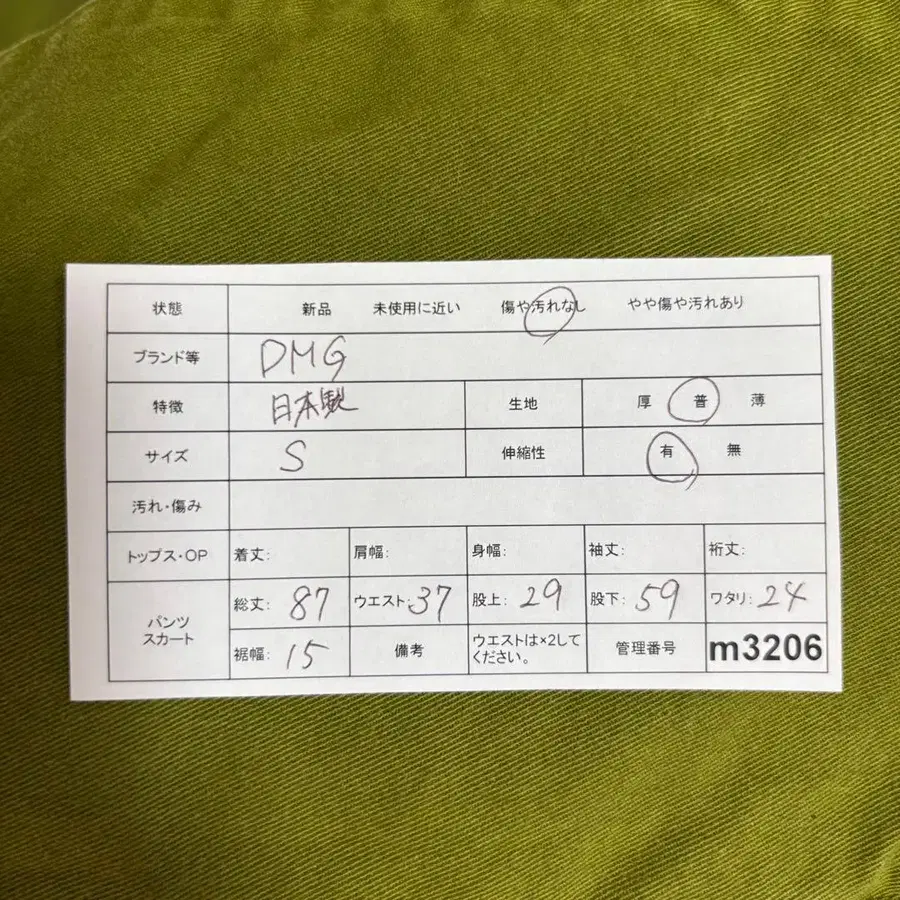 状態 新品 未使用に近い 傷や汚れなし やや傷や汚れあり
ブランド等 DMG
特徴 日本製 生地 厚 普 薄
サイズ S 伸縮性 有 無
汚れ・傷み
トップス・OP 着丈: 肩幅: 身幅: 袖丈: 裄丈:
パンツ
スカート
総丈: 87 ウエスト: 37 股上: 29 股下: 59 ワタリ: 24
裾幅: 15 備考 ウエストは×2して
ください。 管理番号 m3206